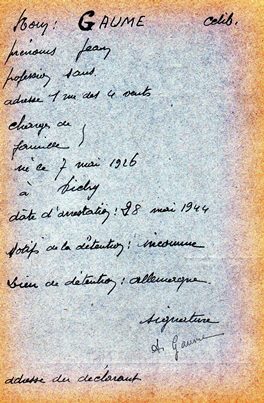 Nom: GAUME Celib.
prénoms Jean
profession sans.
adresse 1 rue des 4 vents
charges de
famille }
né le 7 mai 1926
à Vichy
date d'arrestation: 28 mai 1944
Motif de la détention: inconnue
Lieu de détention: allemagne
signature
Gaume
adresse du déclarant